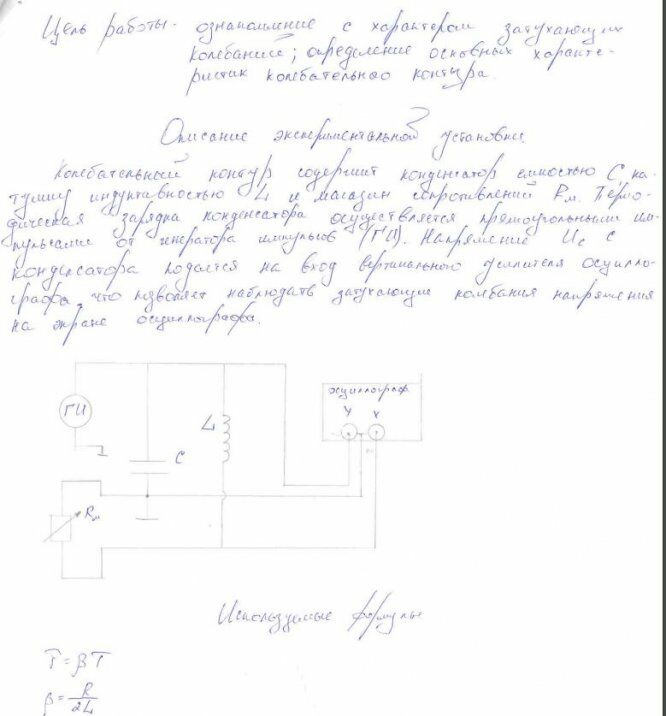 Цель работы - ознакомление с характером затухающих
колебаний; определение основных характе-
ристик колебательного контура.
Описание экспериментальной установки.
Колебательный контур содержит конденсатор емкостью C, ка-
тушку индуктивностью L и магазин сопротивлений Rм. Перио-
дическая зарядка конденсатора осуществляется прямоугольными им-
пульсами от генератора импульсов (ГИ). Напряжение Uc с
конденсатора подается на вход вертикального усилителя осцилло-
графа, что позволяет наблюдать затухающие колебания напряжения
на экране осциллографа.
осциллограф
ГИ
L
Y X
C
Rм
Используемые формулы
= βT
β = R/2L